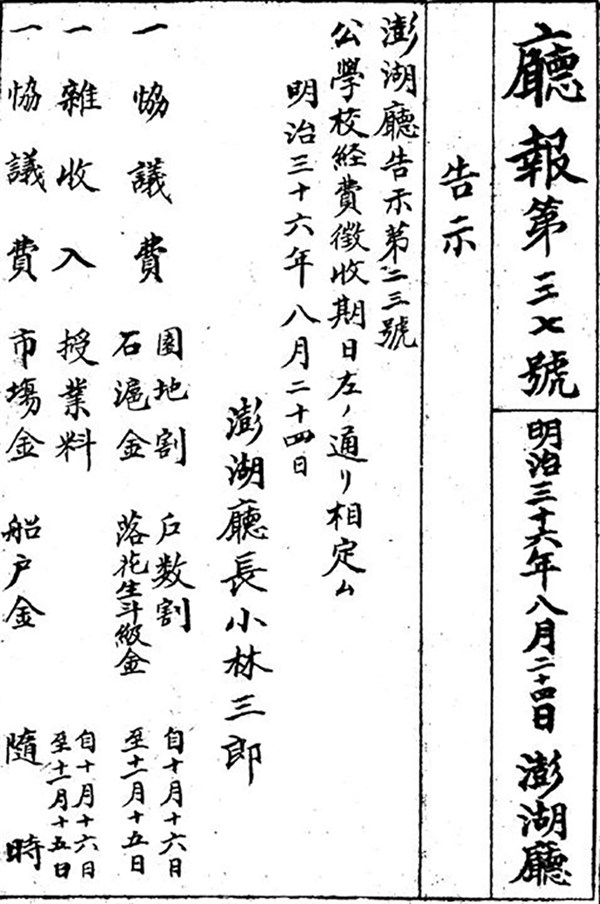 廳報第三七號
明治三十六年八月二十四日 澎湖廳
告示
澎湖廳告示第二三號
公學校経費徵收期日左ノ通リ相定ム
明治三十六年八月二十四日
澎湖廳長小林三郎
一協議費 園地割 戶数割 自十月十六日
石滬金 落花生斗級金 至十一月十五日
一雜收入 授業料 自十月十六日
至十一月十五日
一協議費 市場金 船戶金 隨時